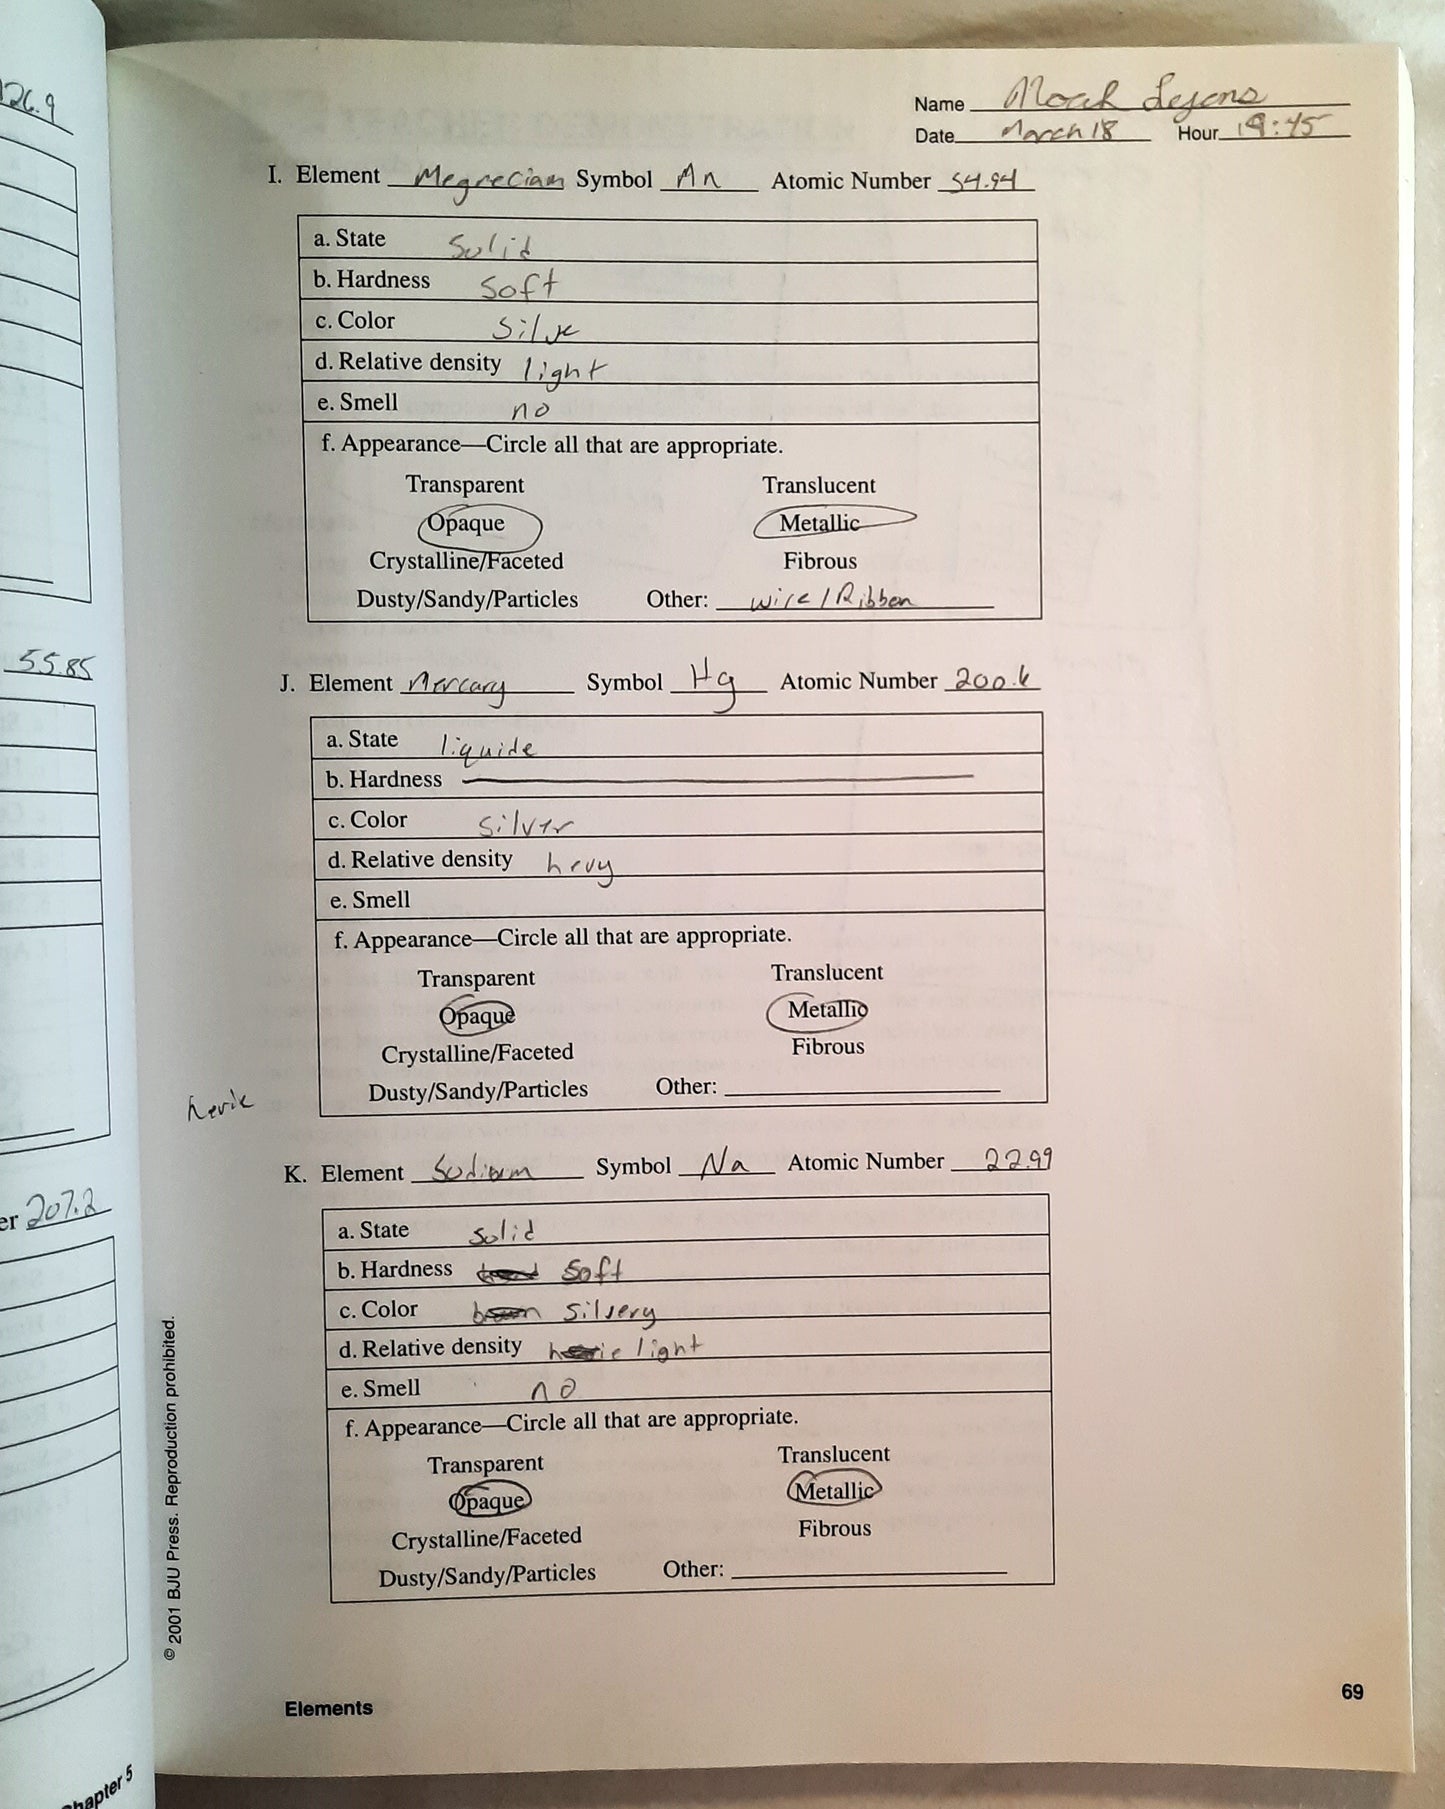 126.9
55.85
er 207.2
Chapter 5
Name Noah Lyons
Date March 18 Hour 9:45
I. Element Megnecium Symbol Mn Atomic Number 54.94
a. State Solid
b. Hardness Soft
c. Color Silve
d. Relative density light
e. Smell no
f. Appearance—Circle all that are appropriate.
Transparent Translucent
Opaque Metallic
Crystalline/Faceted Fibrous
Dusty/Sandy/Particles Other: wire/Ribben
J. Element Mercury Symbol Hg Atomic Number 200.6
a. State liquide
b. Hardness
c. Color silver
d. Relative density hevy
e. Smell
f. Appearance—Circle all that are appropriate.
Transparent Translucent
Opaque Metallic
Crystalline/Faceted Fibrous
Dusty/Sandy/Particles Other:
K. Element Sodium Symbol Na Atomic Number 22.99
a. State solid
b. Hardness soft
c. Color silvery
d. Relative density light
e. Smell no
f. Appearance—Circle all that are appropriate.
Transparent Translucent
Opaque Metallic
Crystalline/Faceted Fibrous
Dusty/Sandy/Particles Other:
© 2001 BJU Press. Reproduction prohibited.
Elements 69